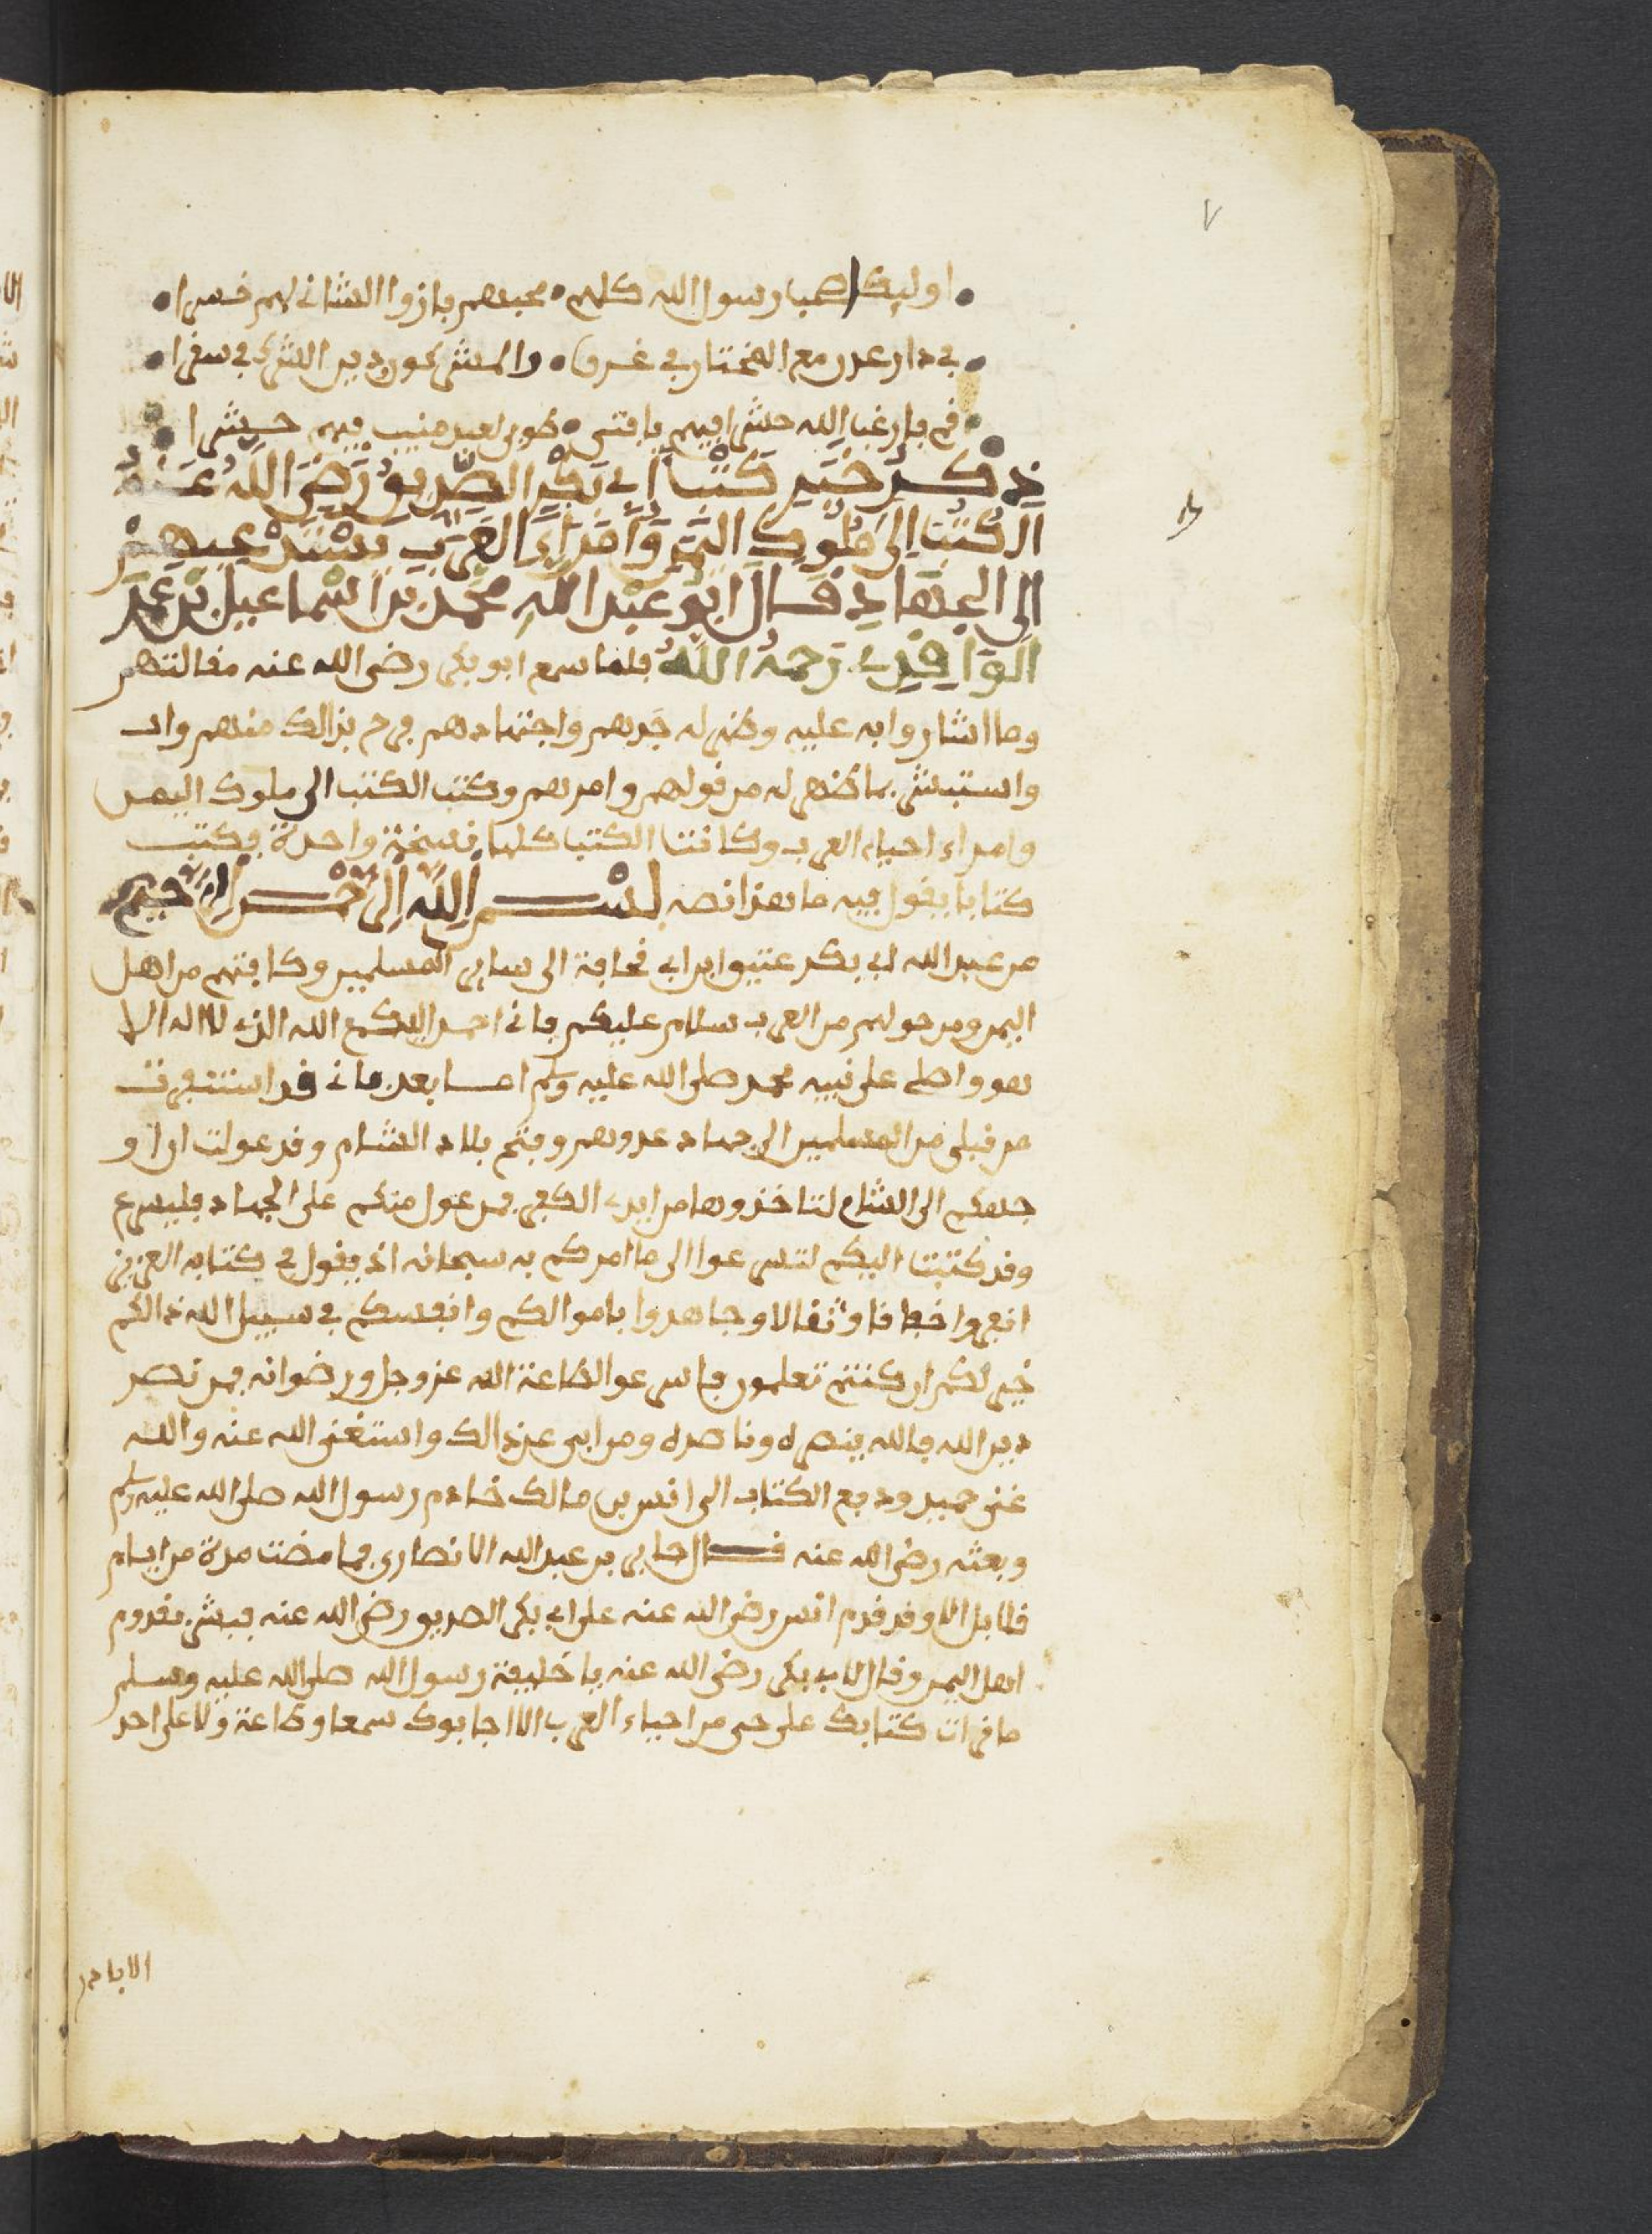 ٧
اوليك اصحاب رسول الله كلهم • محبهم فاز والشاني لهم خسرا •
في دار عدن مع المختار في غرف • والمشركون بدين الشرك في سفرا •
قم فارغب الله حشرا فيهم يا فتى • طوبى لعبد منيب فيهم حشرا
ذكر خبر كتب ابي بكر الصديق رضي الله عنه
الكتب الى ملوك اليمن وامراء العرب يستدعيهم
الى الجهاد قال ابو عبد الله محمد بن اسماعيل بن عمر
الواقدي رحمه الله فلما سمع ابو بكر رضي الله عنه مقالتهم
وما اشاروا به عليه وظهر له جدهم واجتهادهم فرح بذالك منهم
واستبشر بما ظهر له من قولهم وامرهم وكتب الكتب الى ملوك اليمن
وامراء احياء العرب وكانت الكتب كلها نسخة واحدة فكتب
كتابا يقول فيه ما هذا نصه بسم الله الرحمن الرحيم
من عبد الله ابي بكر عتيق ابن ابي قحافة الى ساير المسلمين وكافتهم من اهل
اليمن ومن حولهم من العرب سلام عليكم فاني احمد اليكم الله الذي لا اله الا
هو واصلي على نبيه محمد صلى الله عليه وسلم اما بعد فاني قد استنفرت
من قبلي من المسلمين الى جهاد عدوهم وفتح بلاد الشام وقد عولت ان او
جهكم الى الشام لتاخذوها من ايدي الكفر فمن عول منكم على الجهاد فليسرع
وقد كتبت اليكم لتسرعوا الى ما امركم به سبحانه اذ يقول في كتابه العزيز
انفروا خفافا وثقالا وجاهدوا باموالكم وانفسكم في سبيل الله ذالكم
خير لكم ان كنتم تعلمون فاسرعوا لطاعة الله عز وجل ورضوانه فمن نصر
دين الله فالله ينصره وناصره ومن ابى عن ذالك واستغنى الله عنه والله
غني حميد ودفع الكتاب الى انس بن مالك خادم رسول الله صلى الله عليه وسلم
وبعثه رضي الله عنه قال جابر بن عبد الله الانصاري فما مضت مدة من ايام
قلايل الا وقد قدم انس رضي الله عنه على ابي بكر الصديق رضي الله عنه فبشره بقدوم
اهل اليمن وقال لابي بكر رضي الله عنه يا خليفة رسول الله صلى الله عليه وسلم
ما قرات كتابك على حي من احياء العرب الا اجابوك سمعا وطاعة ولا على احد
الا بادر